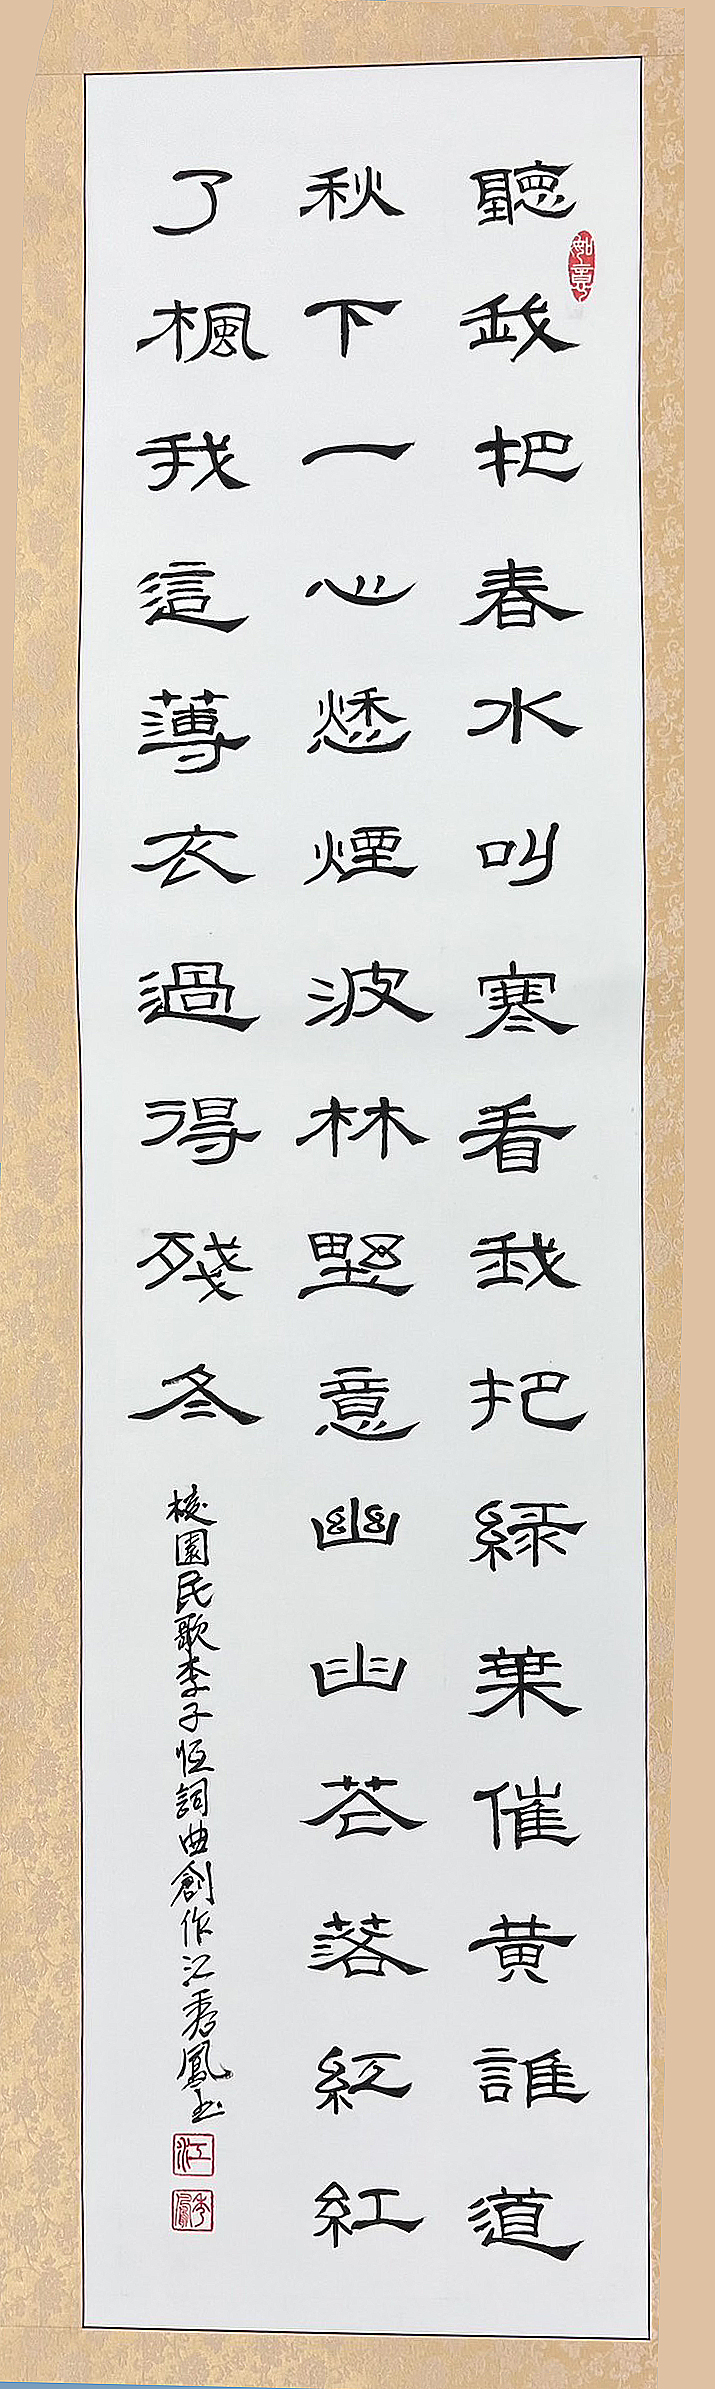 聽我把春水叫寒看我把綠葉催黃誰道
秋下一心愁煙波林野意幽幽花落紅紅
了楓我這薄衣過得殘冬
校園民歌李子恒詞曲創作江秀鳳書
如意
江
秀鳳